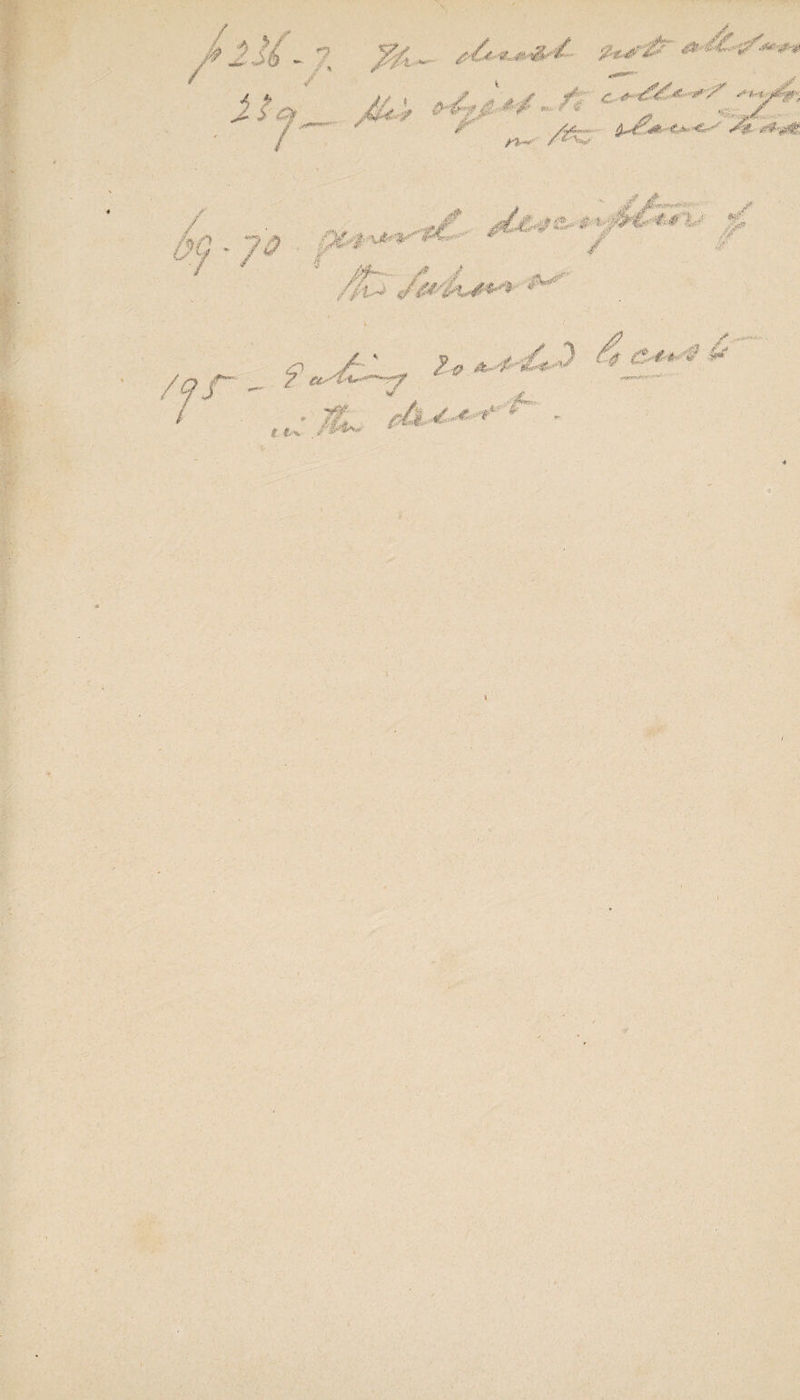 p 236-7. The desert not all sand
239 — His object - to collect info.
on the slave trade
69-70 general description of
the Sahara
195 - Eating roasted locusts
in the desert.